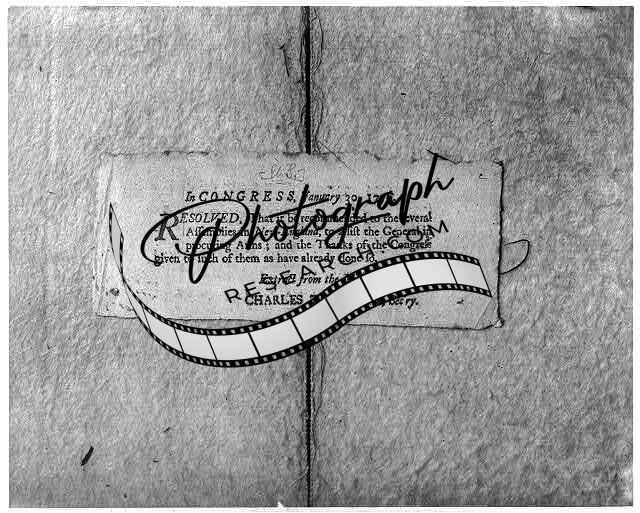 In CONGRESS, January 30,
RESOLVED, That it be recommended to the several
Assemblies in New-England, to assist the General in
procuring Arms ; and the Thanks of the Congress
given to such of them as have already done so.
Extract from the
CHARLES
Photograph
RESEARCH.COM